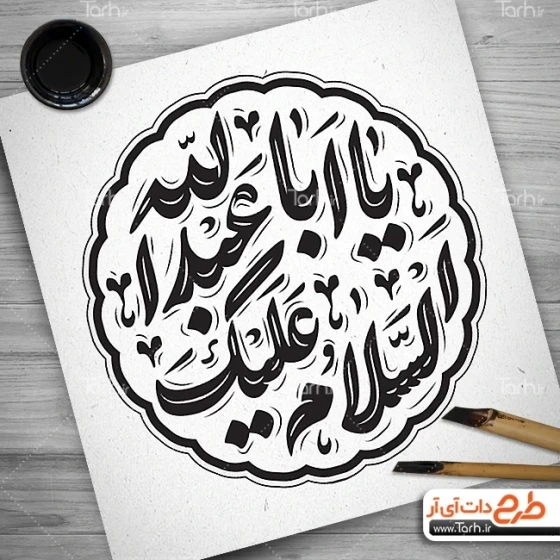 السلام علیک
یا ابا عبدالله
Tarh.ir
طرح دات آی آر
www.Tarh.ir